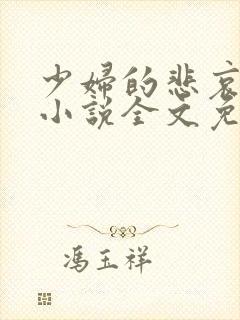 少婦的悲哀
小說全文免
馮玉祥